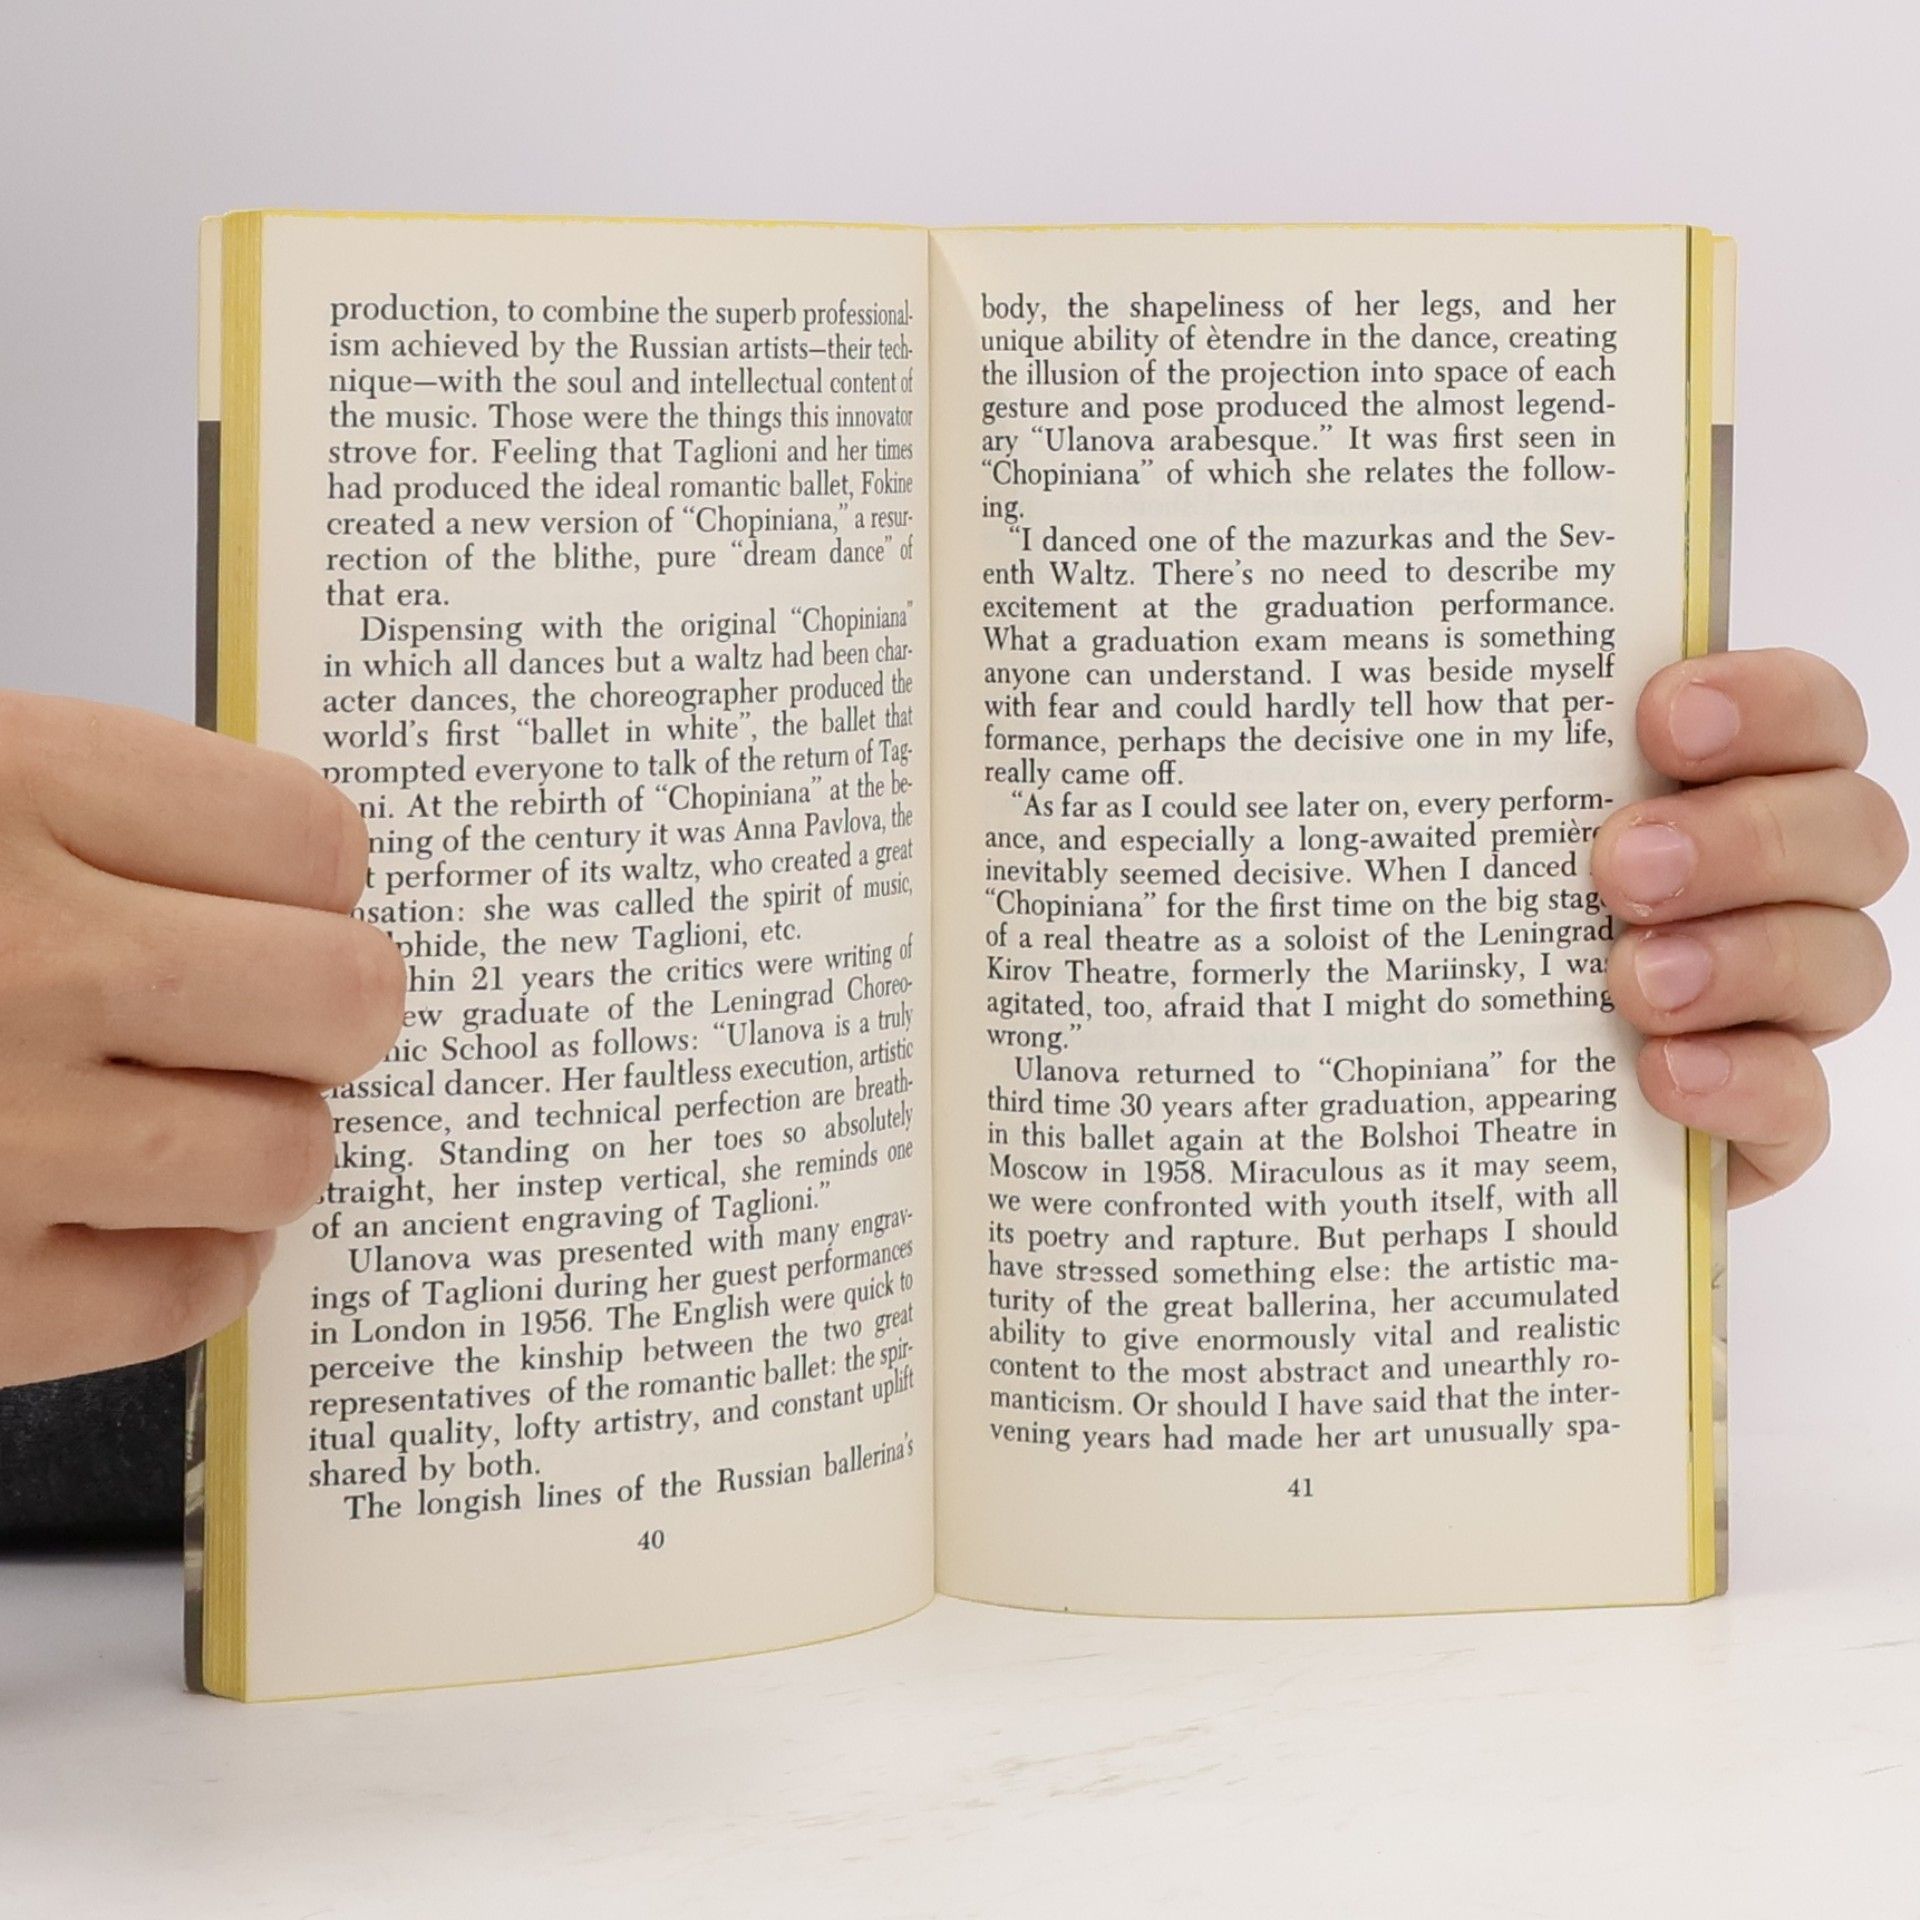 production, to combine the superb professional-
ism achieved by the Russian artists—their tech-
nique—with the soul and intellectual content of
the music. Those were the things this innovator
strove for. Feeling that Taglioni and her times
had produced the ideal romantic ballet, Fokine
created a new version of “Chopiniana,” a resur-
rection of the blithe, pure “dream dance” of
that era.
Dispensing with the original “Chopiniana”
in which all dances but a waltz had been char-
acter dances, the choreographer produced the
world's first “ballet in white”, the ballet that
prompted everyone to talk of the return of Tag-
ni. At the rebirth of “Chopiniana” at the be-
ning of the century it was Anna Pavlova, the
t performer of its waltz, who created a great
nsation: she was called the spirit of music,
phide, the new Taglioni, etc.
hin 21 years the critics were writing of
ew graduate of the Leningrad Choreo-
nic School as follows: “Ulanova is a truly
classical dancer. Her faultless execution, artistic
resence, and technical perfection are breath-
king. Standing on her toes so absolutely
straight, her instep vertical, she reminds one
of an ancient engraving of Taglioni.”
Ulanova was presented with many engrav-
ings of Taglioni during her guest performances
in London in 1956. The English were quick to
perceive the kinship between the two great
representatives of the romantic ballet: the spir-
itual quality, lofty artistry, and constant uplift
shared by both.
The longish lines of the Russian ballerina's
40
body, the shapeliness of her legs, and her
unique ability of ètendre in the dance, creating
the illusion of the projection into space of each
gesture and pose produced the almost legend-
ary “Ulanova arabesque.” It was first seen in
“Chopiniana” of which she relates the follow-
ing.
“I danced one of the mazurkas and the Sev-
enth Waltz. There's no need to describe my
excitement at the graduation performance.
What a graduation exam means is something
anyone can understand. I was beside myself
with fear and could hardly tell how that per-
formance, perhaps the decisive one in my life,
really came off.
“As far as I could see later on, every perform-
ance, and especially a long-awaited première
inevitably seemed decisive. When I danced
“Chopiniana” for the first time on the big stage
of a real theatre as a soloist of the Leningrad
Kirov Theatre, formerly the Mariinsky, I was
agitated, too, afraid that I might do something
wrong.”
Ulanova returned to “Chopiniana” for the
third time 30 years after graduation, appearing
in this ballet again at the Bolshoi Theatre in
Moscow in 1958. Miraculous as it may seem,
we were confronted with youth itself, with all
its poetry and rapture. But perhaps I should
have stressed something else: the artistic ma-
turity of the great ballerina, her accumulated
ability to give enormously vital and realistic
content to the most abstract and unearthly ro-
manticism. Or should I have said that the inter-
vening years had made her art unusually spa-
41